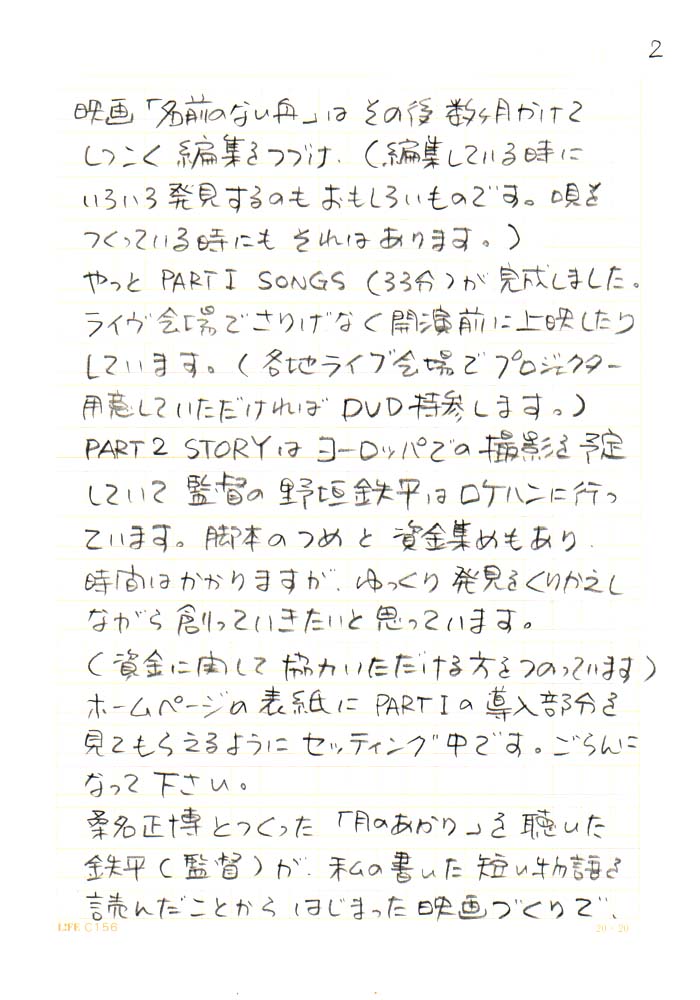 2
映画「名前のない舟」は その後 数ヶ月かけて
しつこく 編集をつづけ、(編集している時に
いろいろ発見するのも おもしろいものです。唄を
つくっている時にも それはあります。)
やっと PART I SONGS (33分)が 完成しました。
ライヴ会場でさりげなく開演前に上映したり
しています。(各地ライブ会場でプロジェクター
用意していただければ DVD持参します。)
PART 2 STORYは ヨーロッパでの 撮影を予定
していて 監督の 野垣鉄平はロケハンに行っ
ています。脚本のつめと 資金集めもあり、
時間はかかりますが、ゆっくり 発見をくりかえし
ながら 創っていきたいと思っています。
(資金に関して 協力いただける方をつのっています)
ホームページの表紙に PART Iの 導入部分を
見てもらえるように セッティング中です。ごらんに
なって 下さい。
桑名正博とつくった「月のあかり」を 聴いた
鉄平(監督)が、私の書いた 短い物語を
読んだことから はじまった 映画づくりで、
LIFE C156
20×20